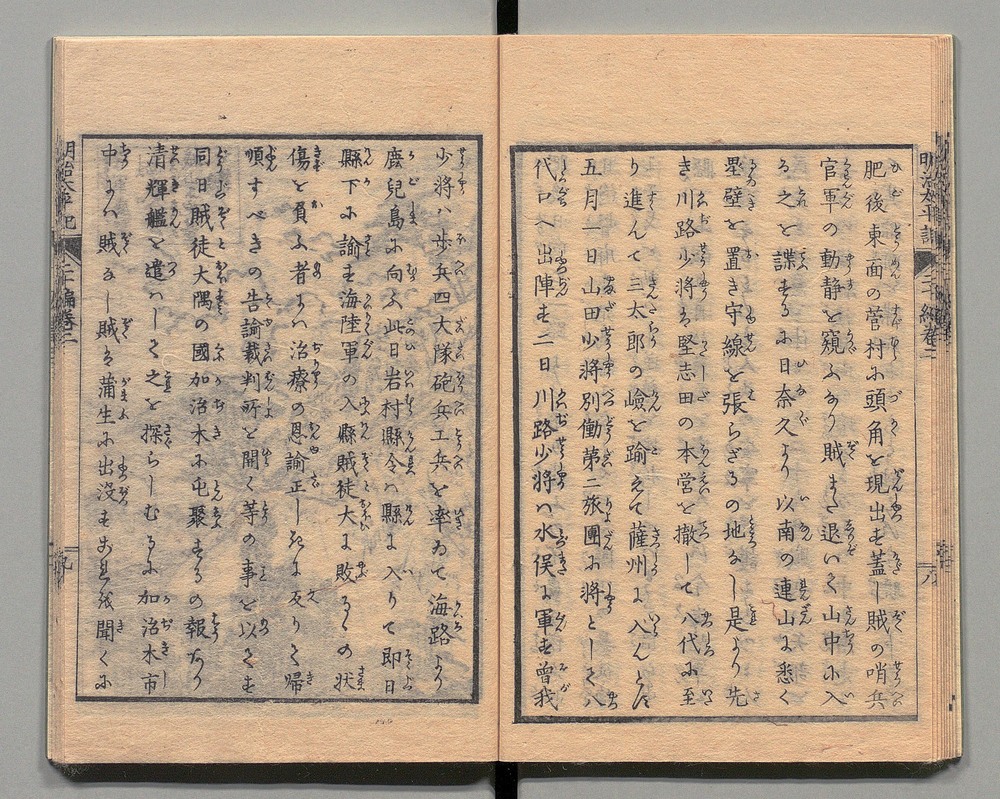 明治太平記 二十編巻二 八
肥後東面の菅村に頭角を現出せ蓋し賊の哨兵
官軍の動静を窺ふあり賊まだ退いて山中に入
る之を諜するに日奈久より以南の連山に悉く
塁壁を置き守線を張らざるの地なし是より先
き川路少将は堅志田の本営を撤して八代に至
り進んで三太郎の嶮を踰えて薩州に入んとす
五月一日山田少将別働第二旅團に将として八
代口へ出陣す二日川路少将は水俣に軍す曽我
少将ハ歩兵四大隊砲兵工兵を率ゐて海路より
鹿児島に向ふ此日岩村縣令ハ縣に入りて即日
縣下に諭すに海陸軍の入縣賊徒大に敗るゝの状
傷を負ふ者には治療の恩諭正しきに反りて帰
順すべきの告諭裁判所を開く等の事を以てす
同日賊徒大隅の國加治木に屯聚するの報あり
清輝艦を遣ハして之を探らしむるに加治木市
中には賊なし賊は蒲生に出没すあ是を聞くに
明治太平記 二十編巻二 九